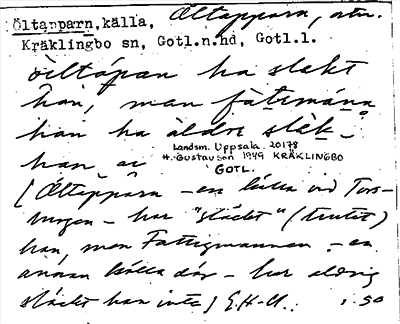 Öltapparn, källa, Öltapparn, otr.
Kräklingbo sn, Gotl.n.hd, Gotl.l.
öiltápan ha släkt
han, man fátemána
han ha áldrε släk-
han ar
Landsm. Uppsala. 20178
H. Gustavson 1949 KRÄKLINGBO
GOTL.
[Öltapparn – en källa vid Tors-
burgen – har "släckt" (trutit)
han, men Fattigmannen – en
annan källa där – har aldrig
släckt han inte] G.H-U. 1.50